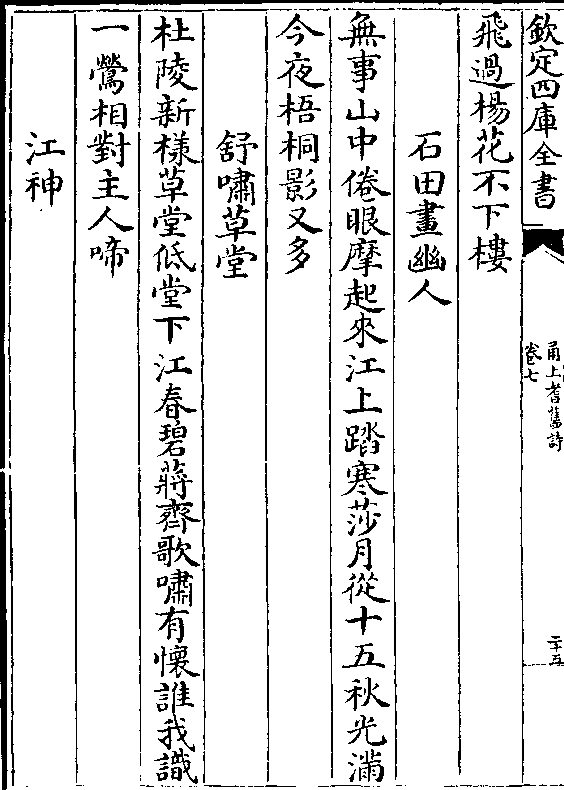 欽定四庫全書
甬上耆舊詩
卷七
二十五
飛過楊花不下樓
石田畫幽人
無事山中倦眼摩起來江上踏寒莎月從十五秋光滿
今夜梧桐影又多
舒嘯草堂
杜陵新様草堂低堂下江春碧蔣齊歌嘯有懷誰我識
一鶯相對主人啼
江神